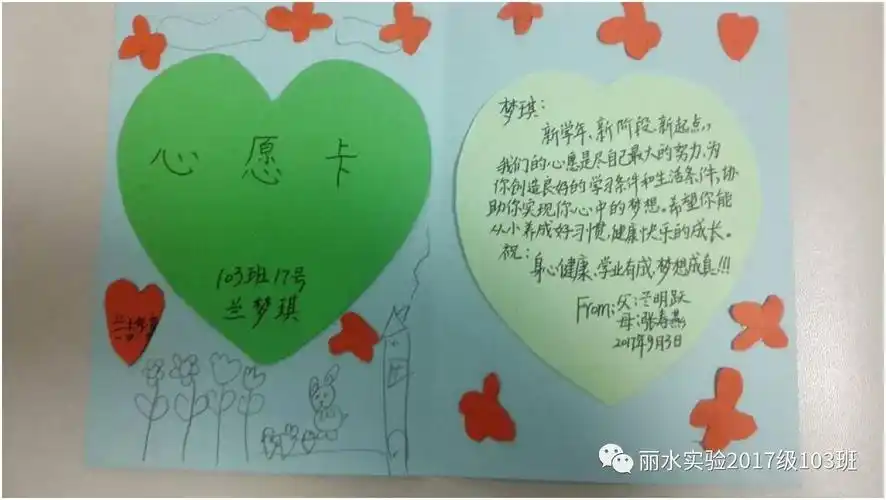 心愿卡
103班17号
兰梦琪
梦琪:
新学年、新阶段、新起点,,
我们的心愿是尽自己最大的努力,为
你创造良好的学习条件和生活条件,协
助你实现你心中的梦想。希望你能
从小养成好习惯,健康快乐的成长。
祝:
身心健康、学业有成,梦想成真!!!
From:父:兰明跃
母:张春燕
2017年9月3日
丽水实验2017级103班